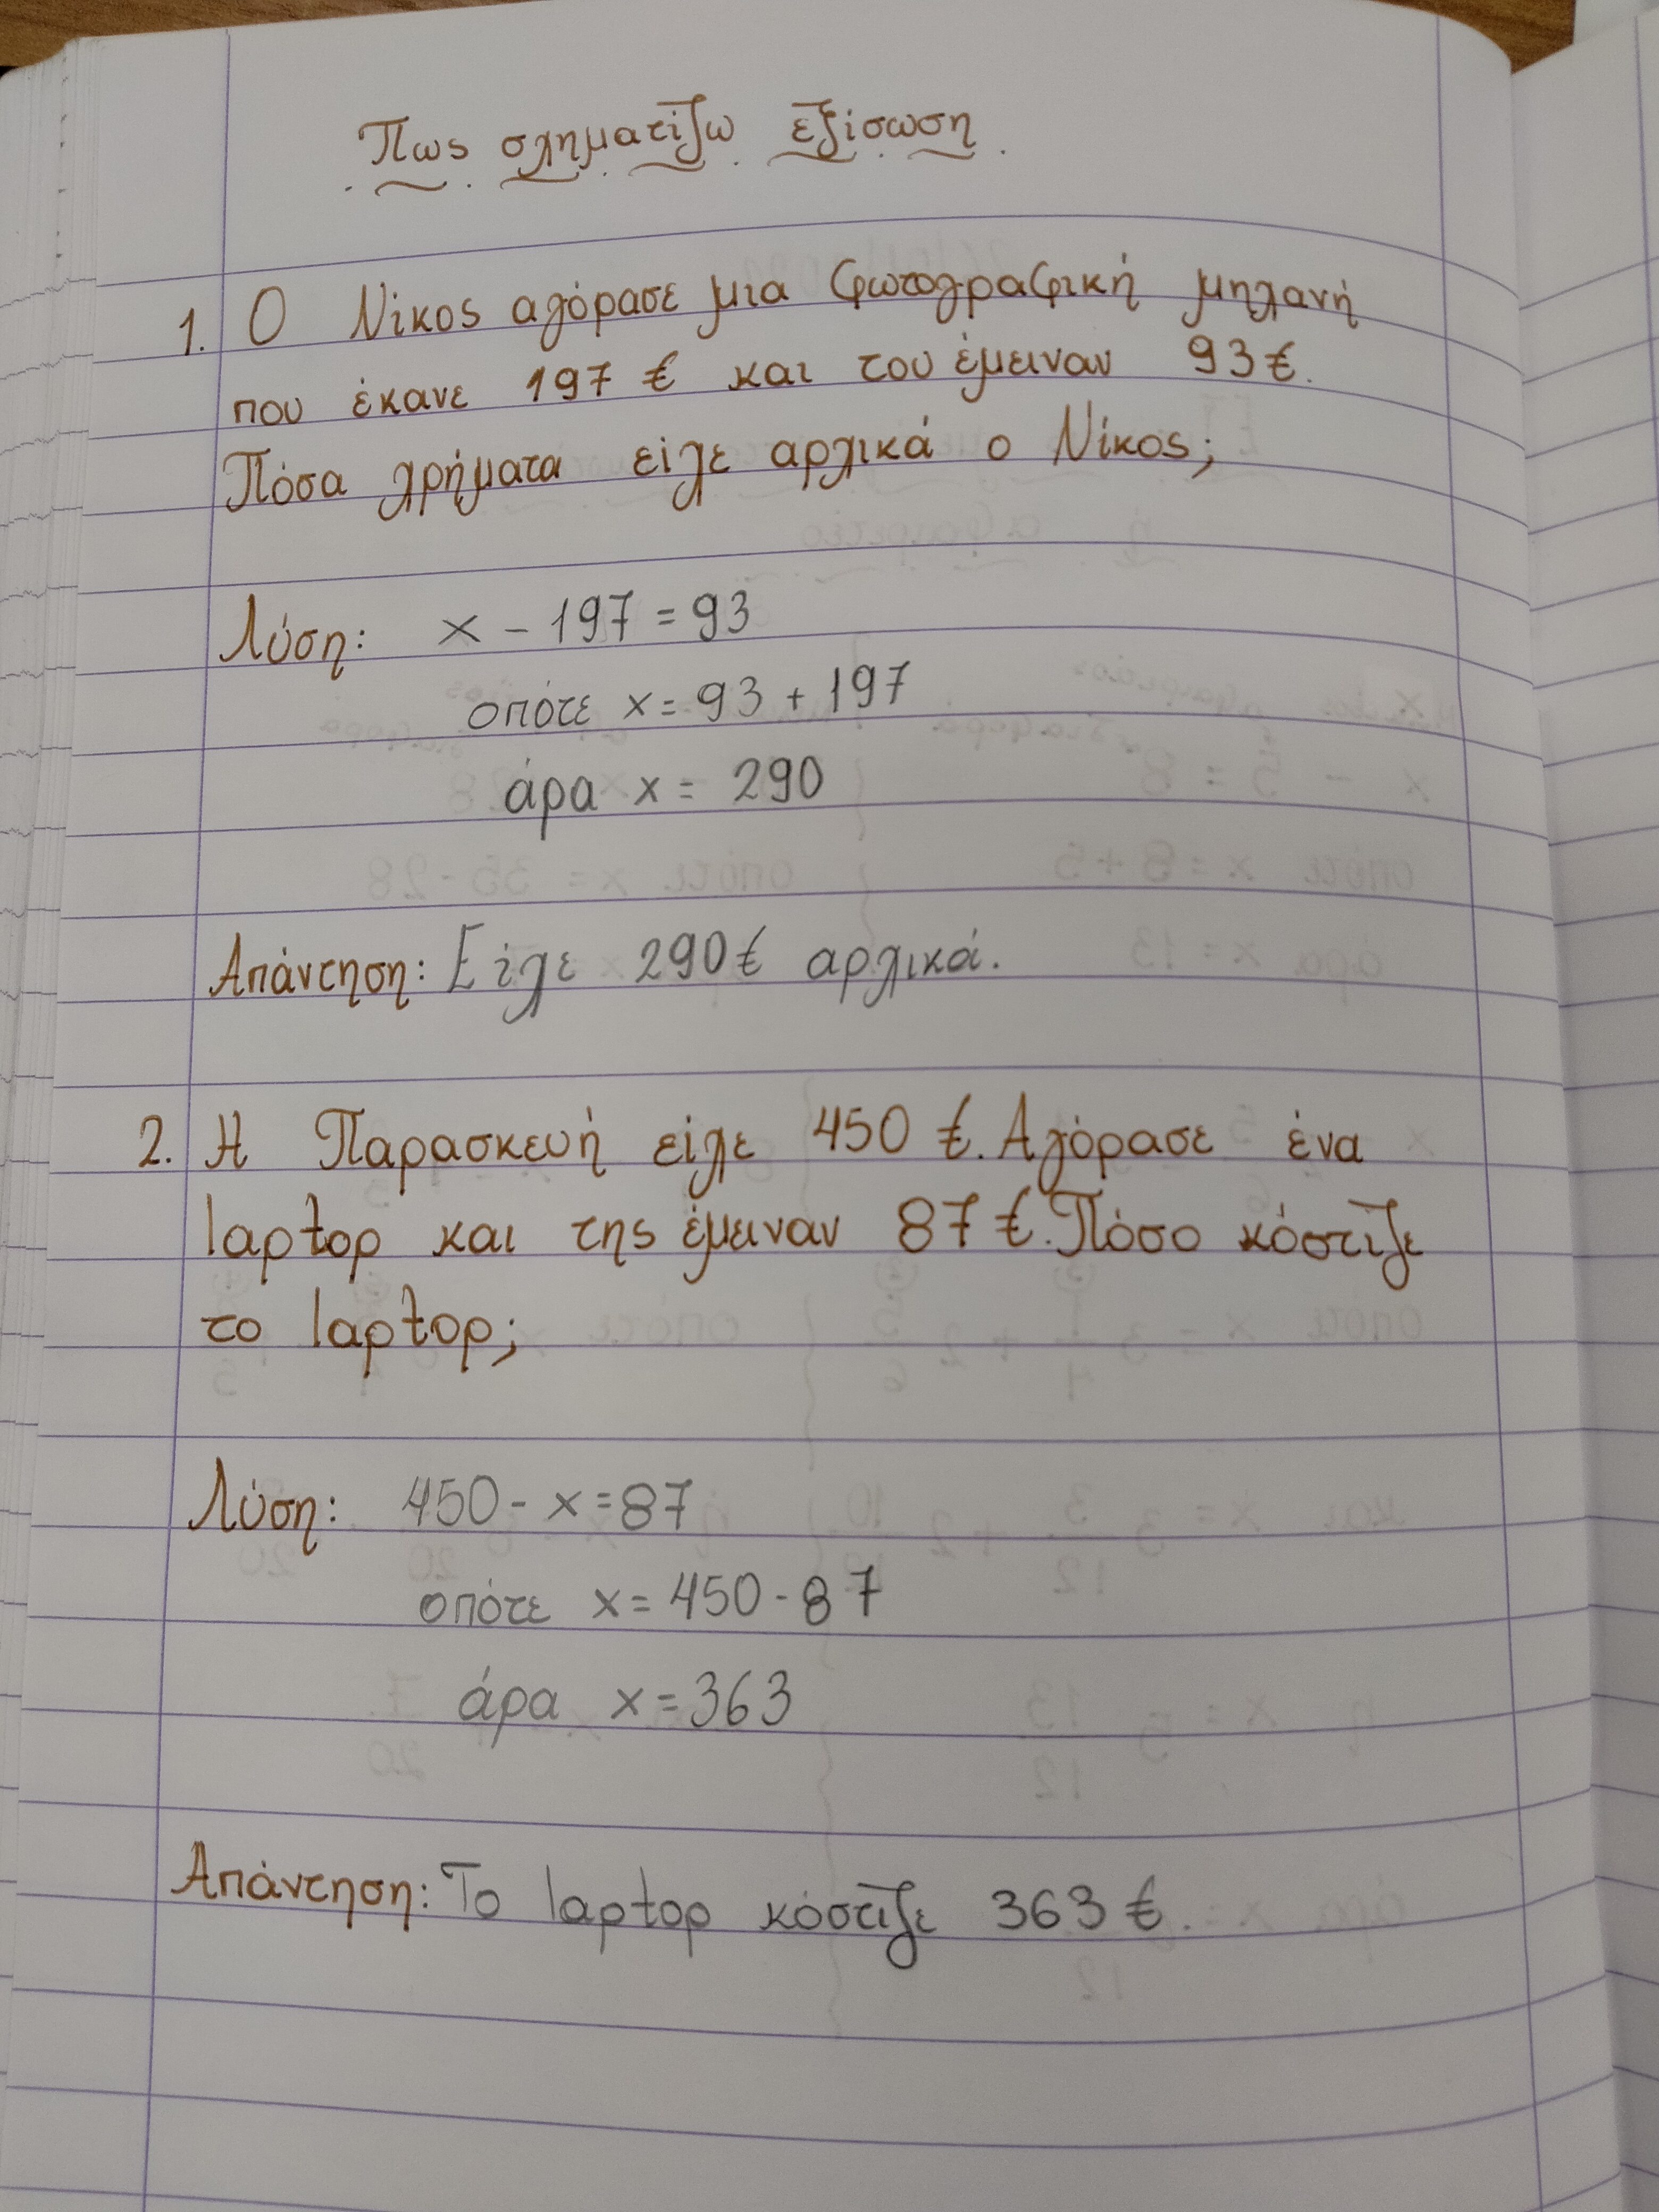 Πως σχηματίζω εξίσωση
1. Ο Νίκος αγόρασε μια φωτογραφική μηχανή
που έκανε 197 € και του έμειναν 93 €.
Πόσα χρήματα είχε αρχικά ο Νίκος;
Λύση: x - 197 = 93
οπότε x = 93 + 197
άρα x = 290
Απάντηση: Είχε 290 € αρχικά.
2. Η Παρασκευή είχε 450 €. Αγόρασε ένα
laptop και της έμειναν 87 €. Πόσο κόστιζε
το laptop;
Λύση: 450 - x = 87
οπότε x = 450 - 87
άρα x = 363
Απάντηση: Το laptop κόστιζε 363 €.